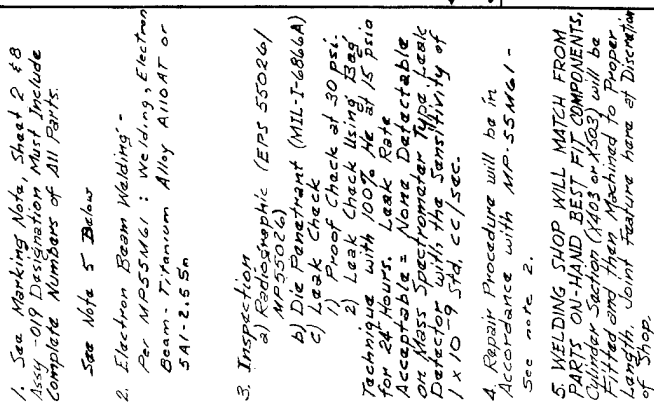 1. See Marking Note, Sheet 2 & 8
Assy -019 Designation Must Include
Complete Numbers of All Parts.
See Note 5 Below
2. Electron Beam Welding -
Per MP55M61 : Welding, Electron
Beam - Titanium Alloy A110AT or
5Al-2.5Sn
3. Inspection
a) Radiographic (EPS 55026/
MP55026)
b) Die Penetrant (MIL-I-6866A)
c) Leak Check
1) Proof Check at 30 psi.
2) Leak Check Using Bag
Technique with 100% He at 15 psia
for 24 Hours. Leak Rate
Acceptable = None Detectable
on Mass Spectrometer Type Leak
Detector with the Sensitivity of
1 x 10-9 Std. cc/sec.
4. Repair Procedure will be in
Accordance with MP-55M61 -
See note 2.
5. WELDING SHOP WILL MATCH FROM
PARTS ON-HAND BEST FIT COMPONENTS,
Cylinder Section (X403 or X503) will be
Fitted and then Machined to Proper
Length. Joint Feature here at Discretion
of Shop.